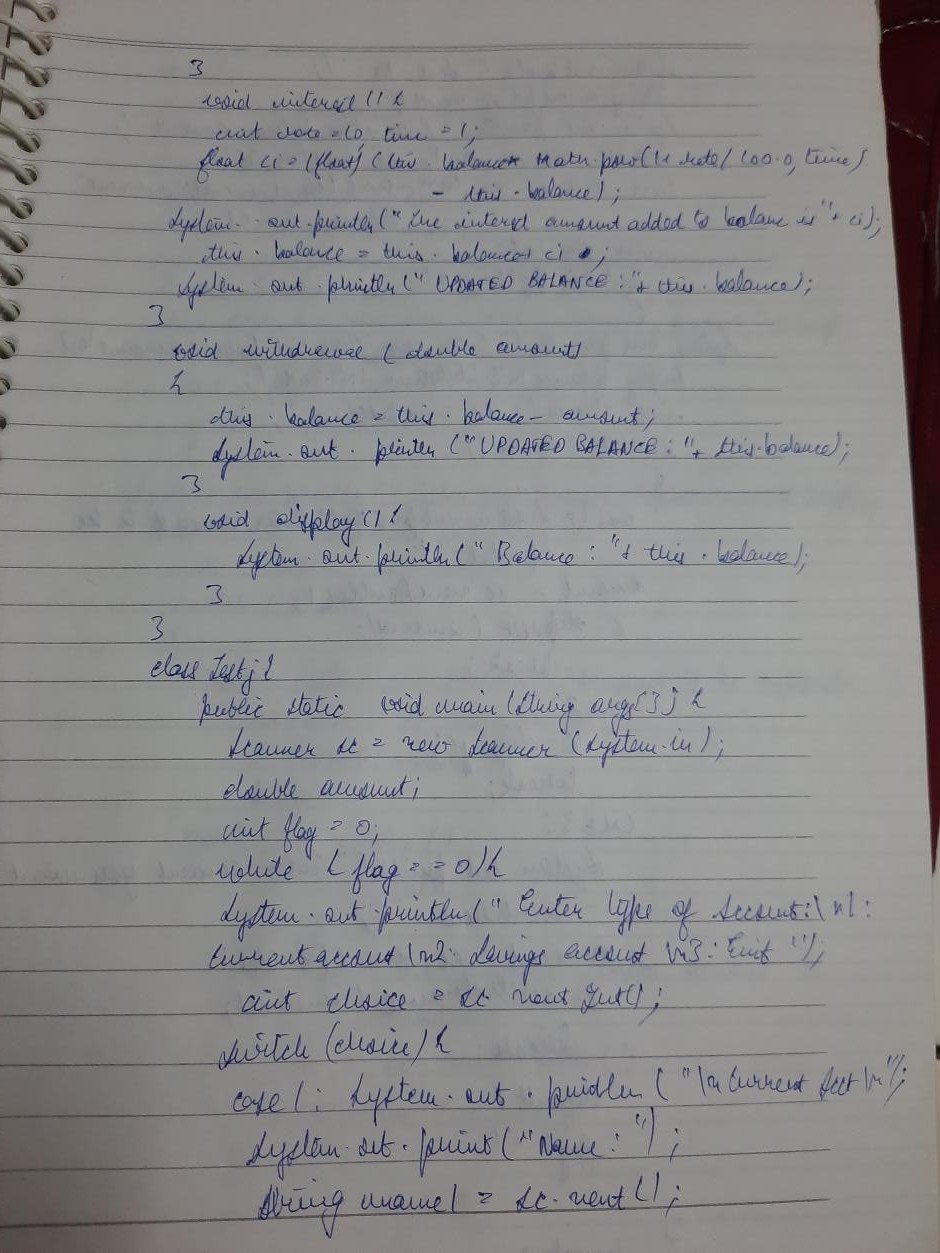 }
void interest () {
int rate = 10, time = 1;
float ci = (float) (this . balance * Math.pow(1+ rate/100.0, time)
- this . balance);
System . out . println (" The interest amount added to balance is" + ci);
this . balance = this . balance + ci ;
System . out . println (" UPDATED BALANCE : " + this . balance);
}
void withdrawal ( double amount)
{
this . balance = this . balance - amount;
System . out . println ("UPDATED BALANCE : " + this.balance);
}
void display () {
System . out . println (" Balance : " + this . balance);
}
}
class Test {
public static void main (String args[]) {
Scanner sc = new Scanner (System.in);
double amount;
int flag = 0;
while ( flag == 0) {
System . out . println (" Enter type of Account: \n1:
Current account \n2: Savings account \n3: Exit ");
int choice = sc. next Int();
switch (choice) {
case 1: System . out . println ( "\n Current Acct \n");
System . out . print ("Name : ") ;
String name1 = sc . next () ;